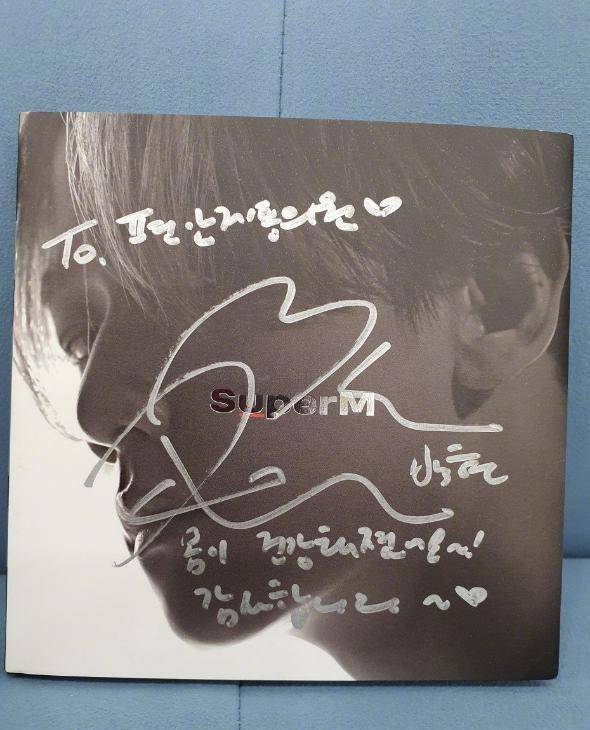 To. 편안제통의원♡
SuperM
백현
몸이 건강해졌어요!
감사합니다 ~♡